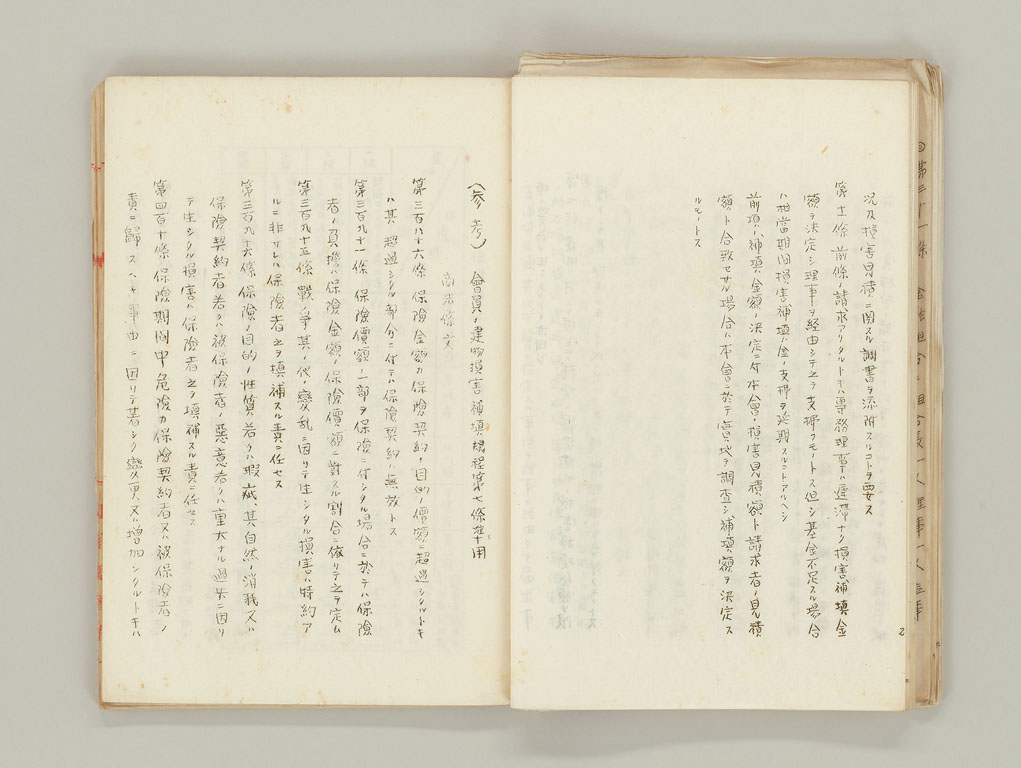 況及損害見積ニ関スル調書ヲ添附スルコトヲ要ス
第十一條 前條ノ請求アリタルトキハ専務理事ハ遅滞ナク損害補填金
額ヲ決定シ理事ヲ経由シテ之ヲ支拂フモノトス但シ基金不足スル場合
ハ相當期間損害補填金ノ支拂ヲ延期スルコトアルヘシ
前項ノ補填金額ノ決定ニ付本會ノ損害見積額ト請求者ノ見積
額ト合致セサル場合ハ本會ニ於テ實地ヲ調査シ補填額ヲ決定ス
ルモノトス
2
(参考) 會員ノ建物損害補填規程第七條準用
商法條文
第三百八十六條 保険金額カ保険契約ノ目的ノ價額ニ超過シタルトキ
ハ其ノ超過シタル部分ニ付テハ保険契約ハ無効トス
第三百九十一條 保険價額ノ一部ヲ保険ニ付シタル場合ニ於テハ保険
者ノ負擔ハ保険金額ノ保険價額ニ對スル割合ニ依リテ之ヲ定ム
第三百九十五條 戰爭其ノ他ノ變乱ニ因リテ生シタル損害ハ特約ア
ルニ非サレハ保険者之ヲ填補スル責ニ任セス
第三百九十六條 保険ノ目的ノ性質若クハ瑕疵其ノ自然ノ消耗又ハ
保険契約者若クハ被保険者ノ惡意若クハ重大ナル過失ニ因リ
テ生シタル損害ハ保険者之ヲ填補スル責ニ任セス
第四百十條 保険期間中危険カ保険契約者又ハ被保険者ノ
責ニ歸スヘキ事由ニ因リテ著シク變更又ハ増加シタルトキハ